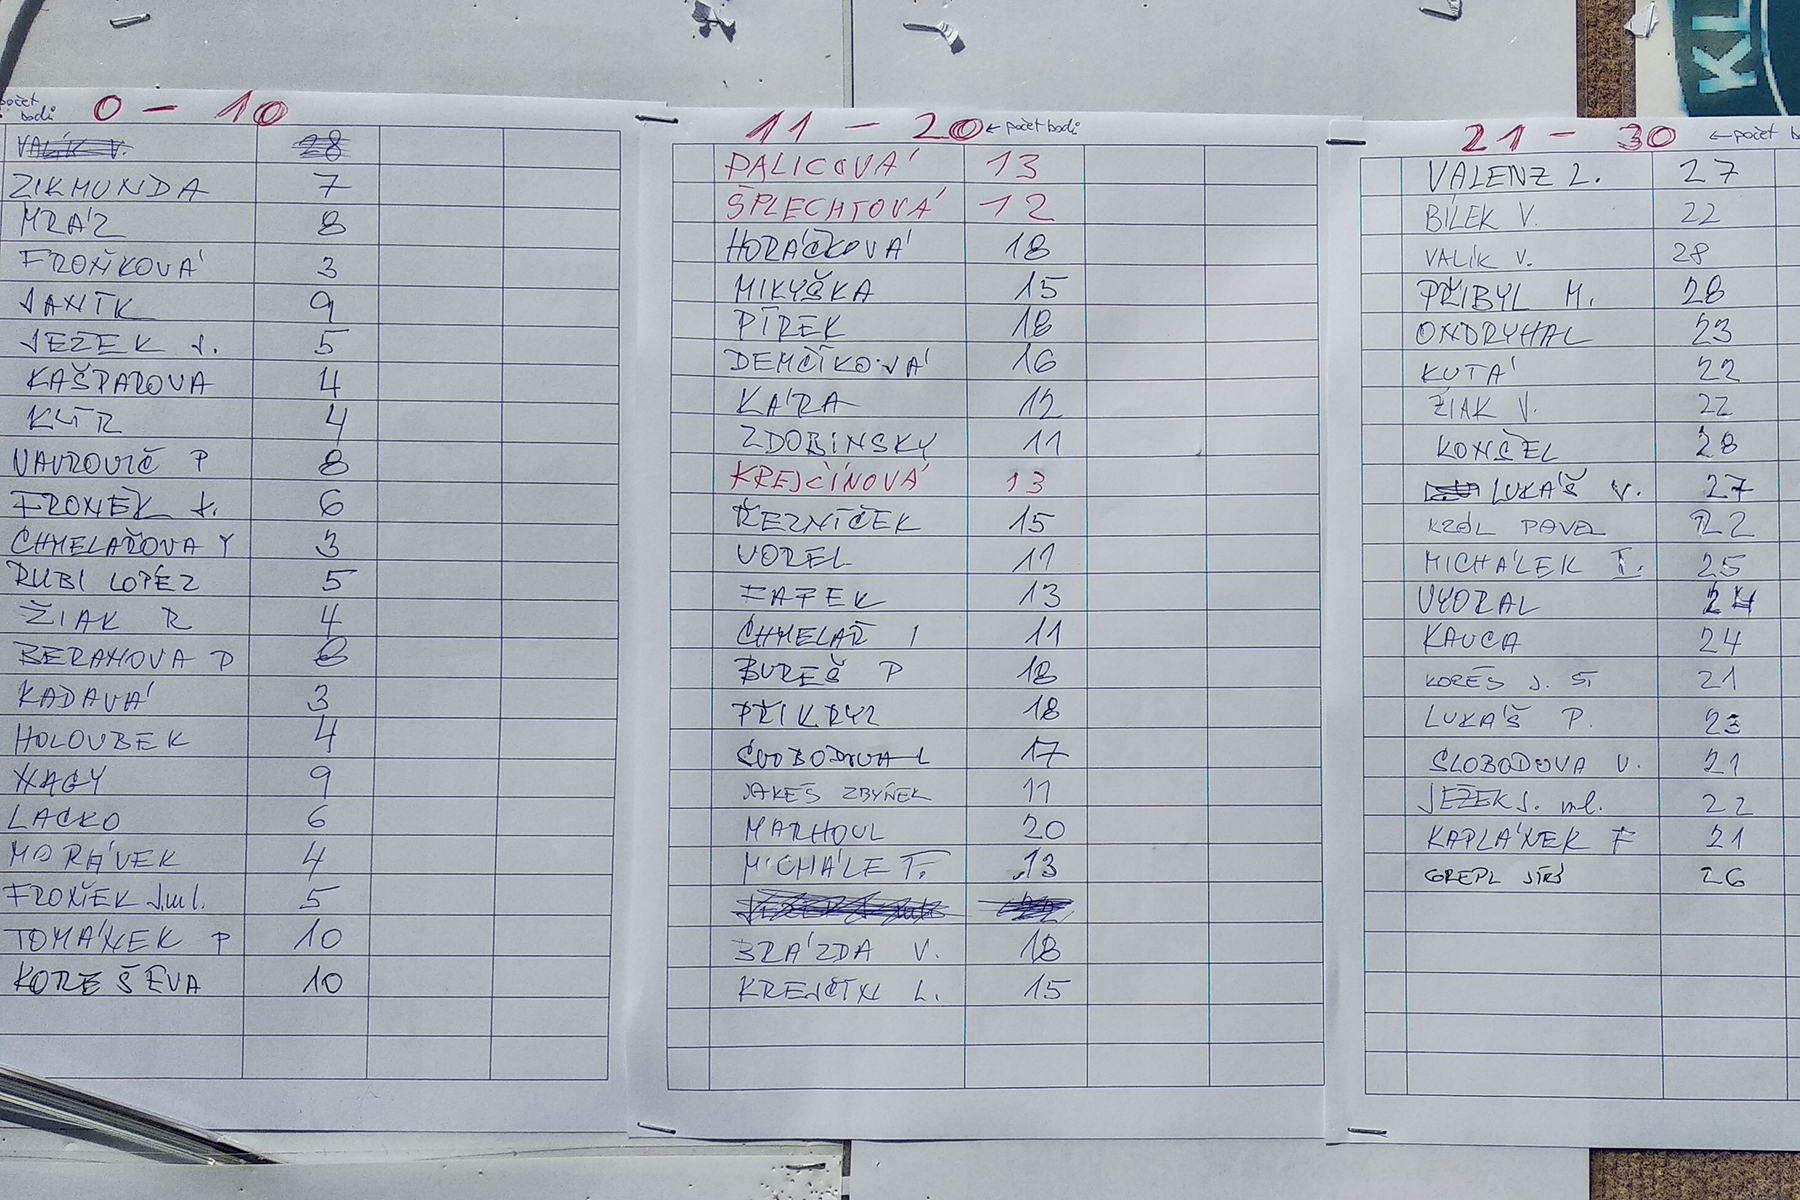 počet bodů 0 - 10
VALÍK V. 28
ZIKMUNDA 7
MRÁZ 8
FROŇKOVÁ 3
JANÍK 9
JEZEK J. 5
KAŠPAROVA 4
KLÍR 4
VAVROVIČ P 8
FRONĚK J. 6
CHMELAŘOVA Y 3
RUBI LOPÉZ 5
ŽIAK R 4
BERANOVA P 8
KADAVÁ 3
HOLOUBEK 4
NAGY 9
LACKO 6
MORÁVEK 4
FRONĚK J.ml. 5
TOMÁNEK P 10
KOREŠ EVA 10
11 - 20 ← počet bodů
PALICOVÁ 13
ŠPLECHTOVÁ 12
HORÁČKOVÁ 18
MIKYŠKA 15
PÍREK 18
DEMČÍKOVÁ 16
KÁRA 12
ZDOBINSKY 11
KREJČÍNOVÁ 13
ŘEZNÍČEK 15
VOREL 11
FAFEK 13
CHMELAŘ I 11
BUREŠ P 18
PŘIKRYL 18
SVOBODOVA L 17
JAKEŠ ZBYŇEK 11
MARHOUL 20
MICHÁLE F. 13
BRÁZDA V. 18
KREJČÍN L. 15
21 - 30 ← počet b
VALENZ L. 27
BÍLEK V. 22
VALÍK V. 28
PŘIBYL M. 28
ONDRYHAL 23
KUTÁ 22
ŽIAK V. 22
KONČEL 28
LUKÁŠ V. 27
KRÁL PAVEL 22
MICHÁLEK I. 25
VYORAL 24
KAUCA 24
KOREŠ J. ST 21
LUKÁŠ P. 23
SLOBODOVA V. 21
JEŽEK J. ml. 22
KAPLÁNEK F 21
GREPL JIŘÍ 26